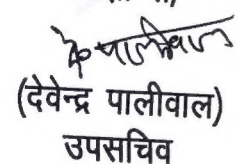 (देवेन्द्र पालीवाल)
उपसचिव